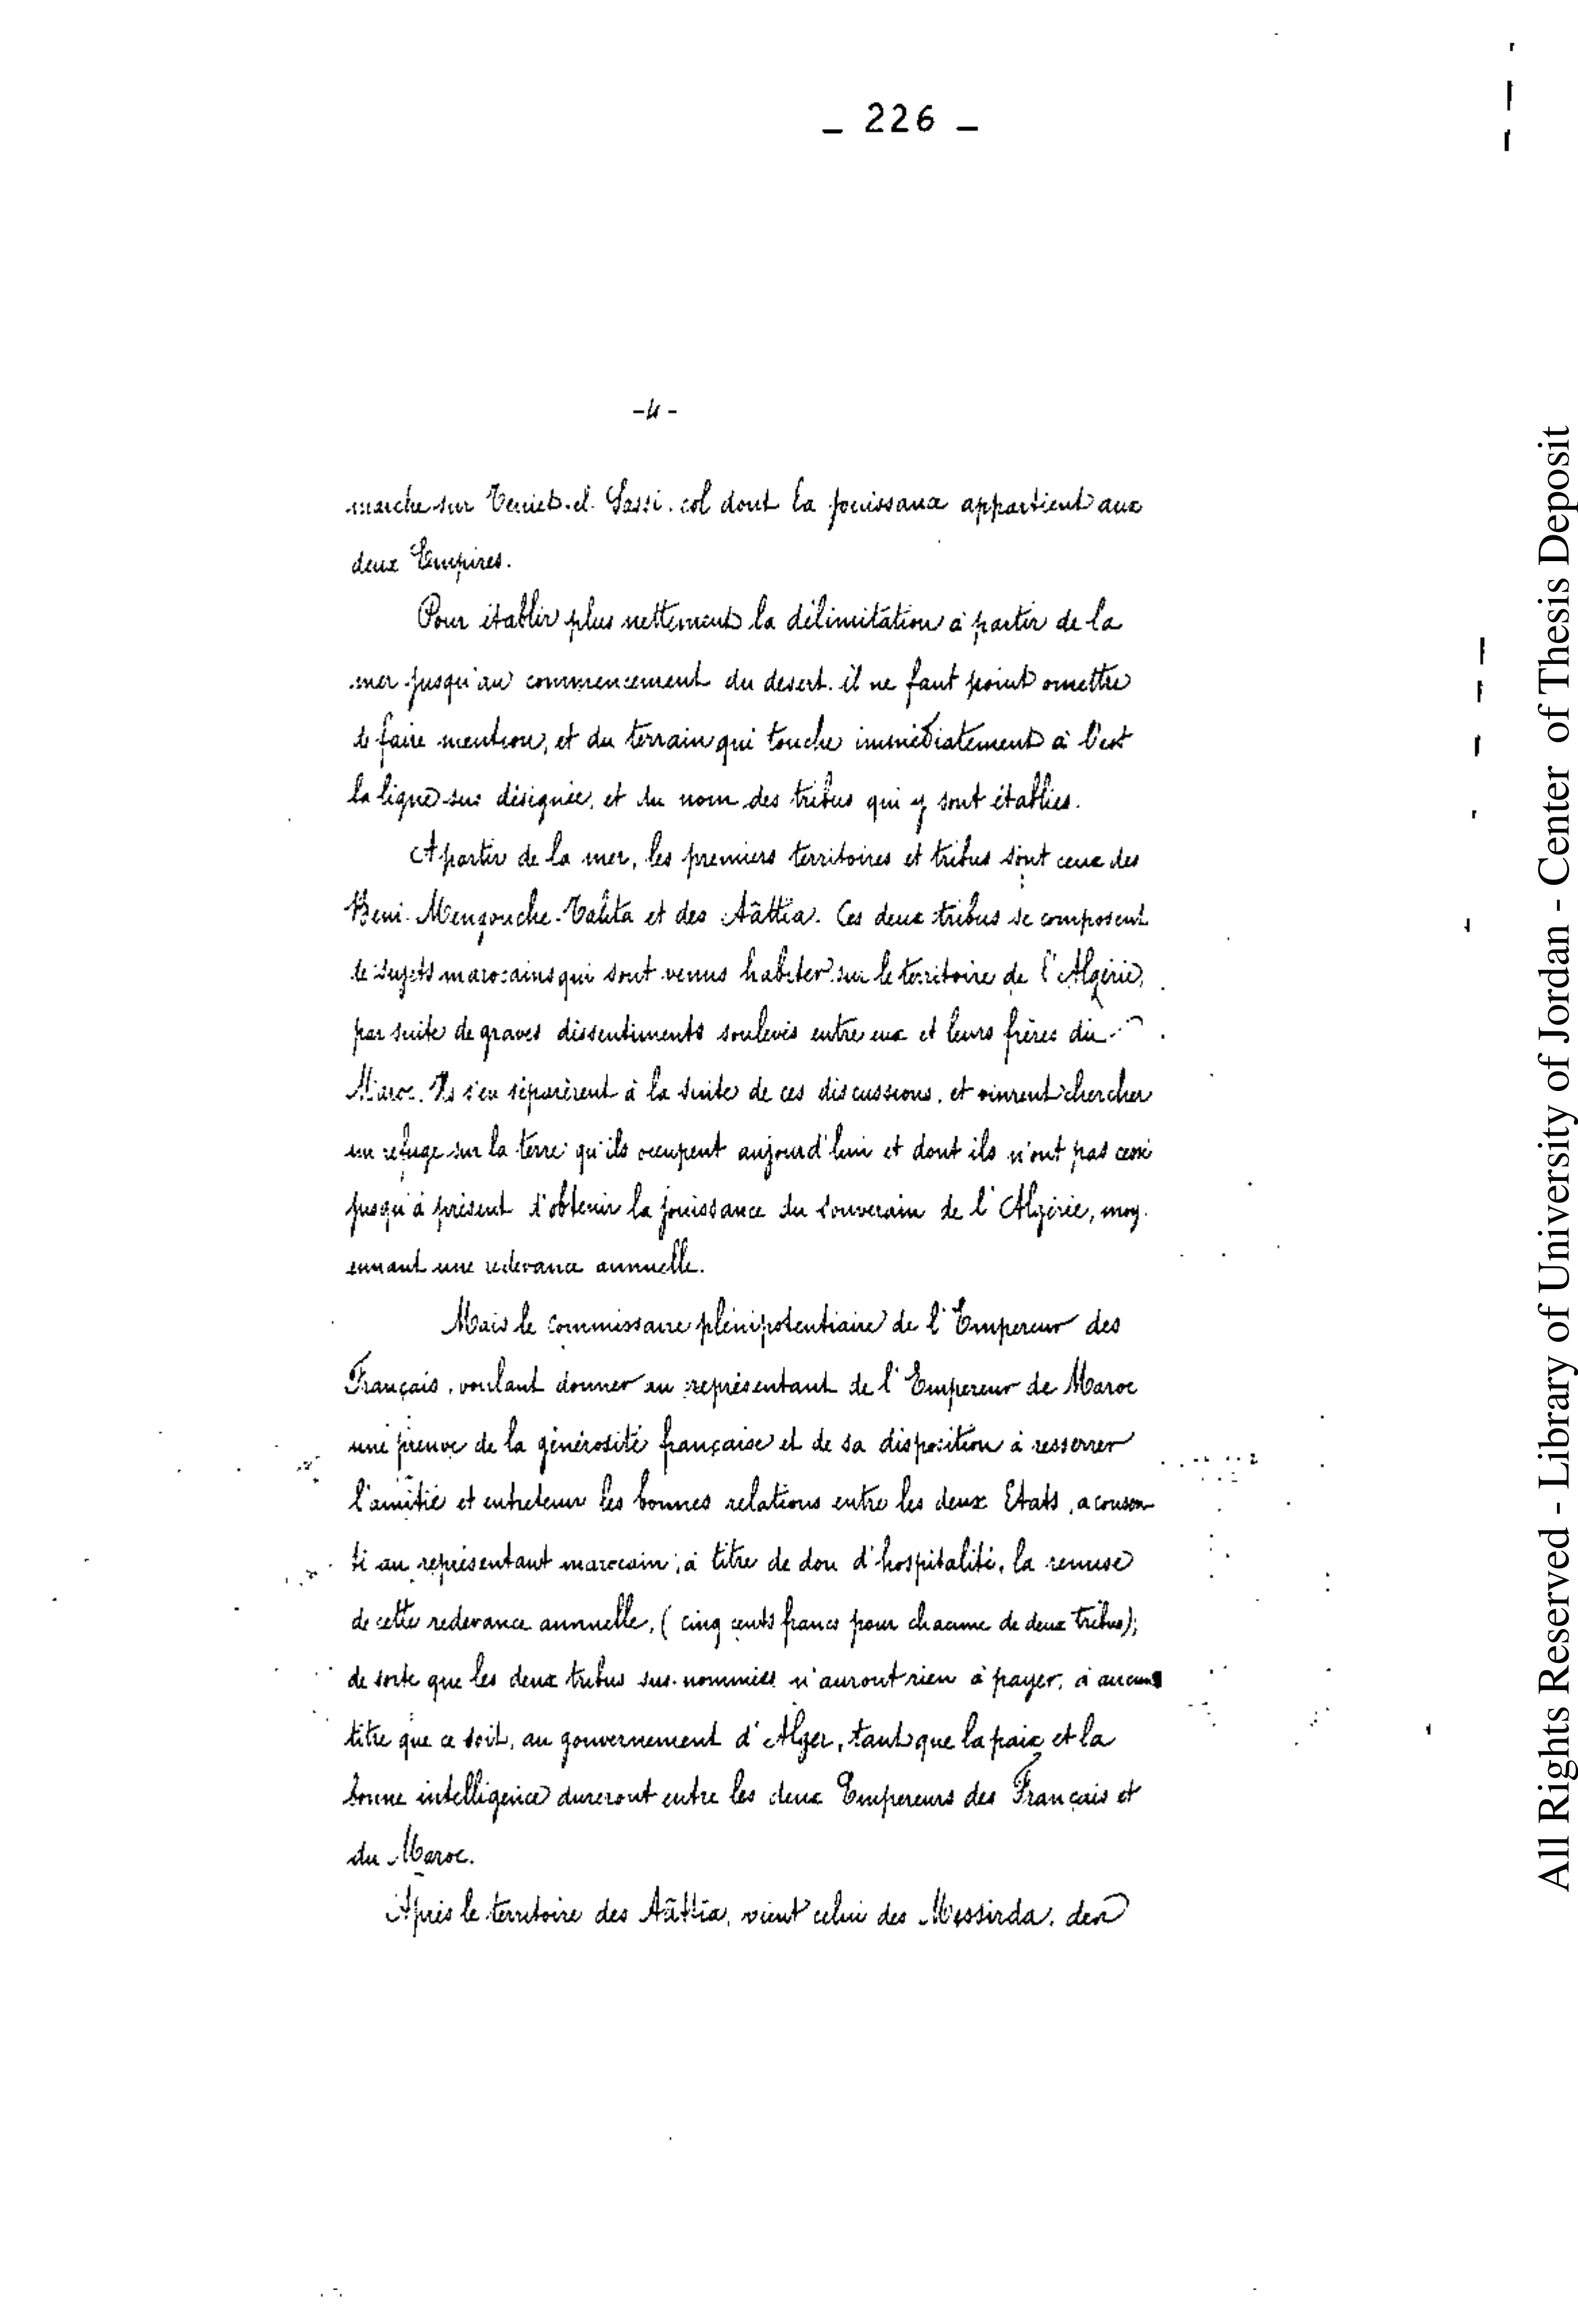 _ 226 _
-4-
marche sur Teniet-el-Sassi, col dont la jouissance appartient aux
deux Empires.
Pour établir plus nettement la délimitation à partir de la
mer jusqu'au commencement du désert, il ne faut point omettre
de faire mention, et du terrain qui touche immédiatement à l'est
la ligne sus désignée, et du nom des tribus qui y sont établies.
A partir de la mer, les premiers territoires et tribus sont ceux des
Beni-Mengouche-Tahta et des Aâttia. Ces deux tribus se composent
de sujets marocains qui sont venus habiter sur le territoire de l'Algérie,
par suite de graves dissentiments soulevés entre eux et leurs frères du
Maroc. Ils s'en séparèrent à la suite de ces discussions, et vinrent chercher
un refuge sur la terre qu'ils occupent aujourd'hui et dont ils n'ont pas cessé
jusqu'à présent d'obtenir la jouissance du souverain de l'Algérie, moy-
ennant une redevance annuelle.
Mais le commissaire plénipotentiaire de l'Empereur des
Français, voulant donner au représentant de l'Empereur de Maroc
une preuve de la générosité française et de sa disposition à resserrer
l'amitié et entretenir les bonnes relations entre les deux Etats, a consen-
ti au représentant marocain, à titre de don d'hospitalité, la remise
de cette redevance annuelle, (cinq cents francs pour chacune de deux tribus);
de sorte que les deux tribus sus-nommées n'auront rien à payer, à aucun
titre que ce soit, au gouvernement d'Alger, tant que la paix et la
bonne intelligence dureront entre les deux Empereurs des Français et
du Maroc.
Après le territoire des Aâttia, vient celui des Messirda, des
All Rights Reserved - Library of University of Jordan - Center of Thesis Deposit